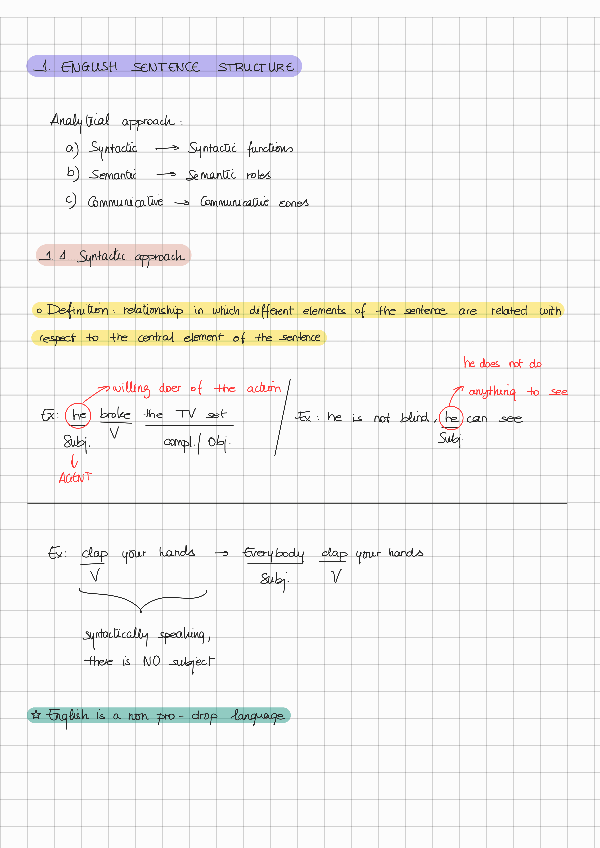 1. ENGLISH SENTENCE STRUCTURE
Analytical approach:
a) Syntactic → Syntactic functions
b) Semantic → Semantic roles
c) Communicative → Communicative zones
1.1 Syntactic approach
o Definition: relationship in which different elements of the sentence are related with
respect to the central element of the sentence
→ willing doer of the action
Ex: he broke the TV set
Subj. V compl./Obj.
↓
AGENT
he does not do
anything to see
Ex: he is not blind, he can see
Subj.
Ex: clap your hands → Everybody clap your hands
V Subj. V
syntactically speaking,
there is NO subject
☆ English is a non pro-drop language